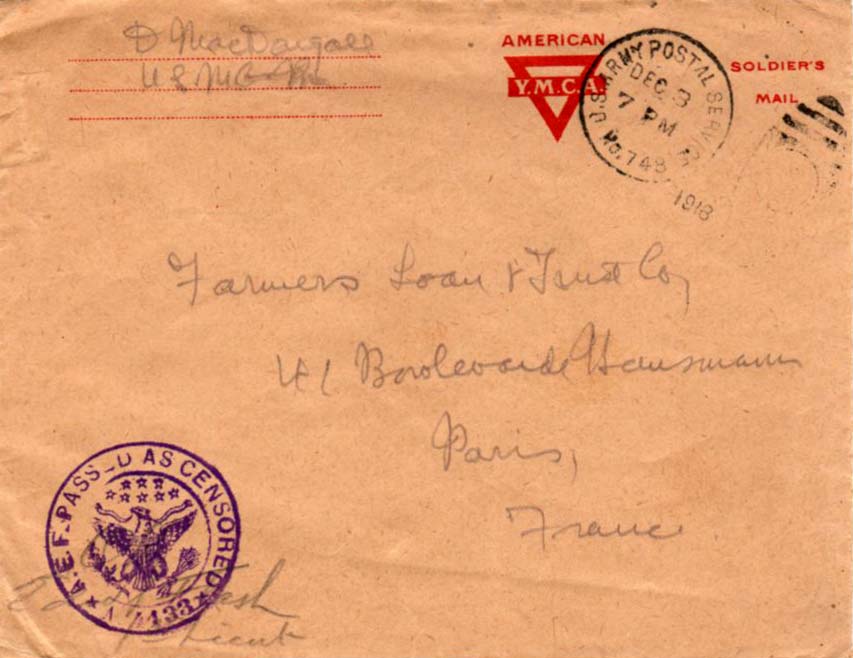 D MacDougall
AMERICAN
Y.M.C.A.
SOLDIER'S
MAIL
U.S. ARMY POSTAL SERVICE
DEC 3
7 PM
No. 748
1918
Farmers Loan & Trust Co,
41 Boulevarde Hausmann
Paris,
France
A.E.F. PASSED AS CENSORED
Lieut